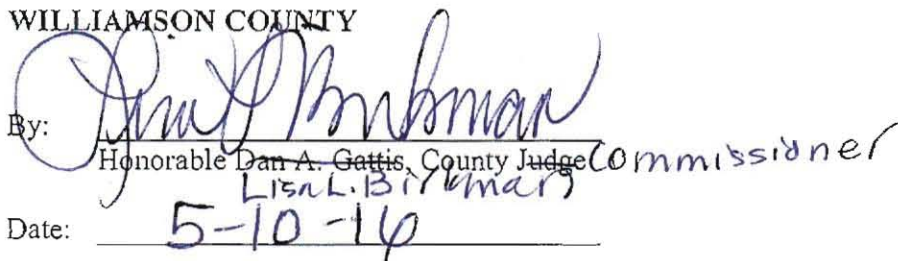 WILLIAMSON COUNTY
By: Lisa L Birkman
Honorable Dan A. Gattis, County Judge Commissioner
Lisa L. Birkman
Date: 5-10-16